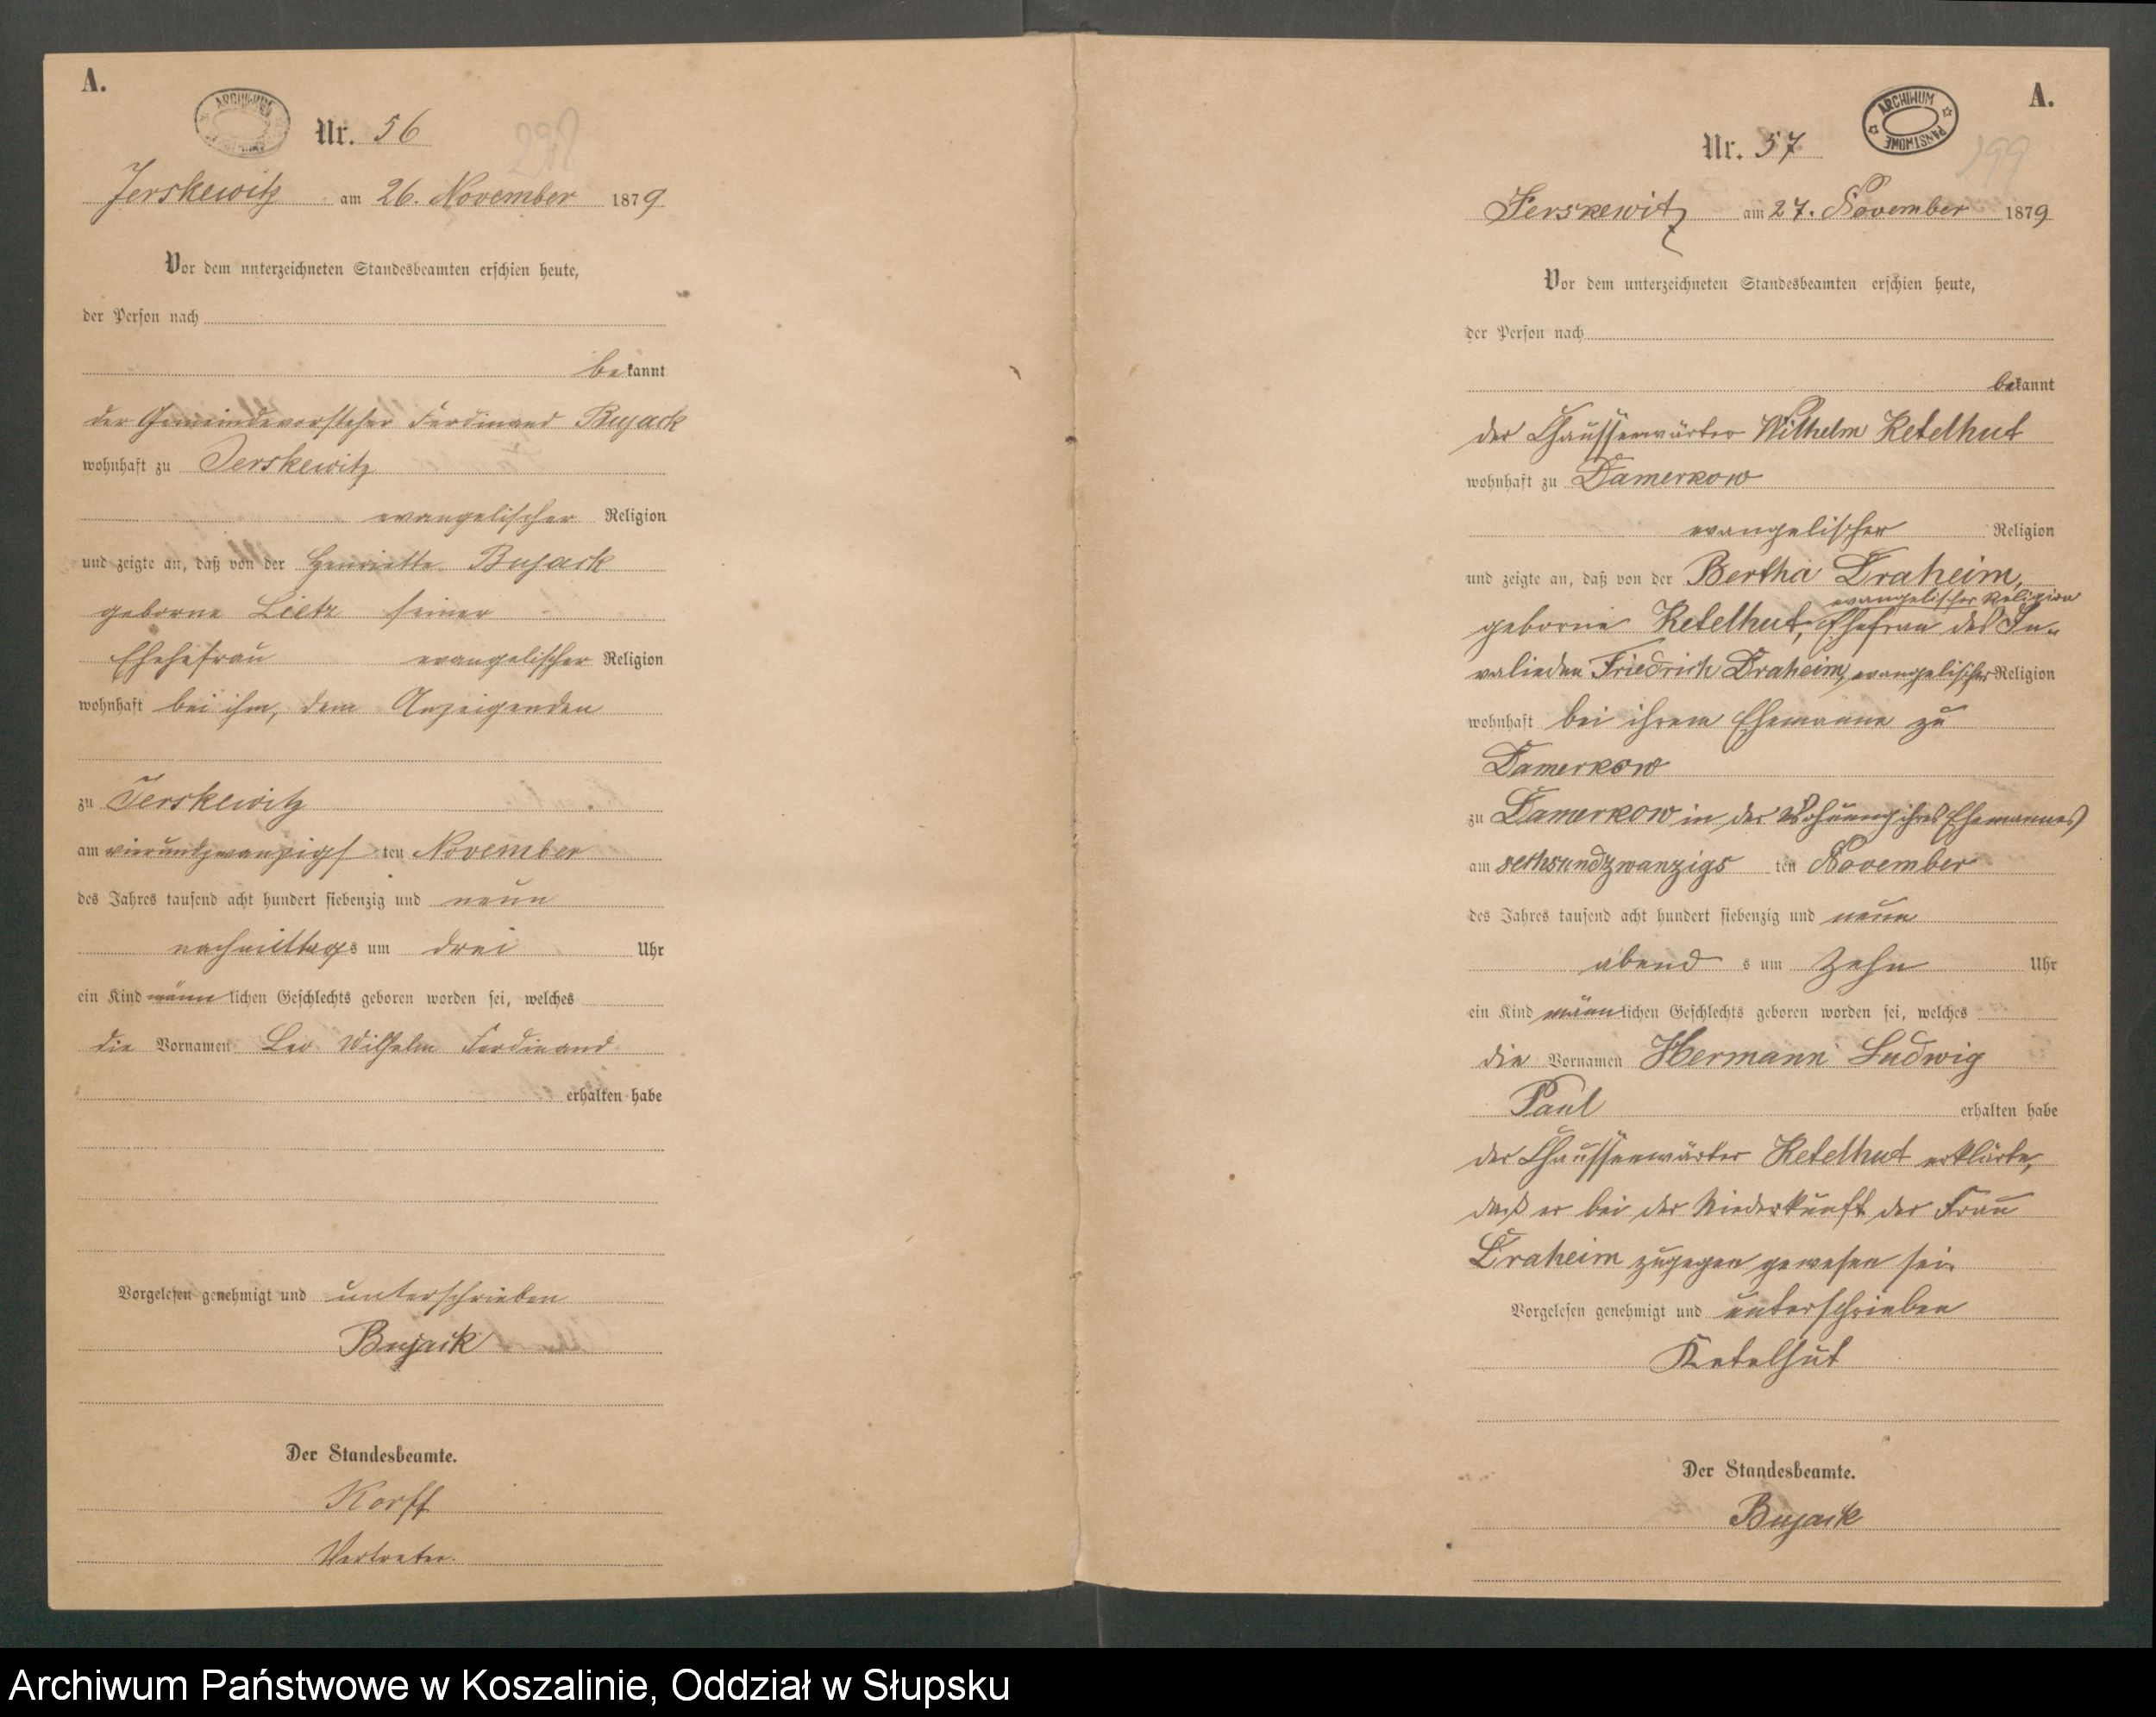 A.
ARCHIWUM
Nr. 56
298
Jerskewitz am 26. November 1879
Vor dem unterzeichneten Standesbeamten erschien heute,
der Person nach
bekannt
der Gemeindevorsteher Ferdinand Bujack
wohnhaft zu Jerskewitz
evangelischer Religion
und zeigte an, daß von der Henriette Bujack
geborne Lietz seiner
Ehehefrau evangelischer Religion
wohnhaft bei ihm, dem Anzeigenden
zu Jerskewitz
am vierundzwanzigsten November
des Jahres tausend acht hundert siebenzig und neun
nachmittags um drei Uhr
ein Kind männlichen Geschlechts geboren worden sei, welches
die Vornamen Leo Wilhelm Ferdinand
erhalten habe
Vorgelesen genehmigt und unterschrieben
Bujack
Der Standesbeamte.
Korff
Vertreter.
A.
ARCHIWUM PAŃSTWOWE
Nr. 57
199
Jerskewitz am 27. November 1879
Vor dem unterzeichneten Standesbeamten erschien heute,
der Person nach
bekannt
der Chausseewärter Wilhelm Ketelhut
wohnhaft zu Damerkow
evangelischer Religion
und zeigte an, daß von der Bertha Draheim,
evangelischer Religion
geborne Ketelhut, Ehefrau des In-
valieden Friedrich Draheim, evangelischer Religion
wohnhaft bei ihrem Ehemanne zu
Damerkow
zu Damerkow in der Wohnung ihres Ehemannes
am sechsundzwanzigsten November
des Jahres tausend acht hundert siebenzig und neun
abends um zehn Uhr
ein Kind männlichen Geschlechts geboren worden sei, welches
die Vornamen Hermann Ludwig
Paul erhalten habe
der Chausseewärter Ketelhut erklärte,
daß er bei der Niederkunft der Frau
Draheim zugegen gewesen sei.
Vorgelesen genehmigt und unterschrieben
Ketelhut
Der Standesbeamte.
Bujack
Archiwum Państwowe w Koszalinie, Oddział w Słupsku